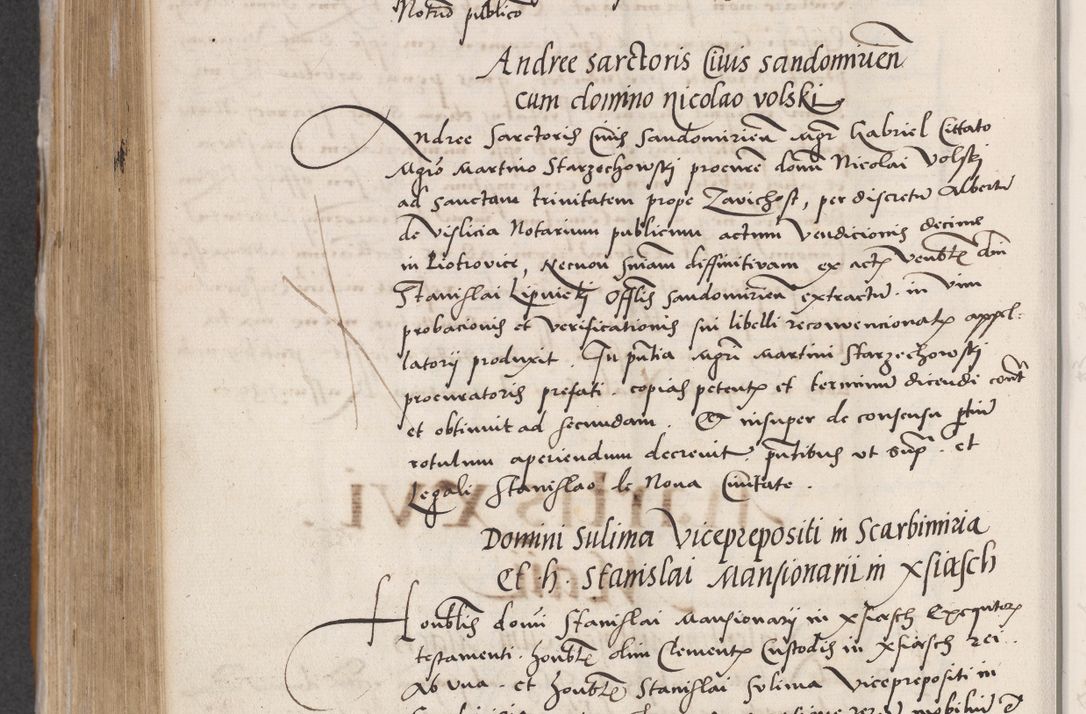 Notrio publico
Andree sarctoris Civis sandomirien
cum domino Nicolao volski
Andree Sarctoris Civis Sandomirien Mgr Gabriel Cittato
Mgro Martino Starzechowskj procure domi Nicolai Volskj
ad Sanctam trinitatem prope Zavichost, per discretu Albertu
de Vislicia Notarium publicum actum Vendicionis decime
in Liotrovice, Necnon sniam diffinitivam ex actis Venblis dni
Stanislai Lipniczkj Offlis Sandomirien extractu. in vim
probacionis et verificationis sui libelli reconvencionalis appel-
latorij produxit. In pntia Mgri Martini Starzechowskj
procuratoris prefati. copias petentis et terminu dicendi contra
et obtinuit ad secundam. Et insuper de consensu ptiu
rotulum aperiendum decrevit. pntibus ut supra. et
Legali Stanislao de Nova Civitate.
Domini Sulima Viceprepositi in Scarbimiria
Et h. Stanislai Mansionarii in Xsiasch
Honblis domi Stanislai Mansionarij in Xsiasch Exequitoris
testamenti. honblis olim Clementis Custodis in Xsiasch rei.
Ab una. et honblis Stanislai Sulima Viceprepositi in